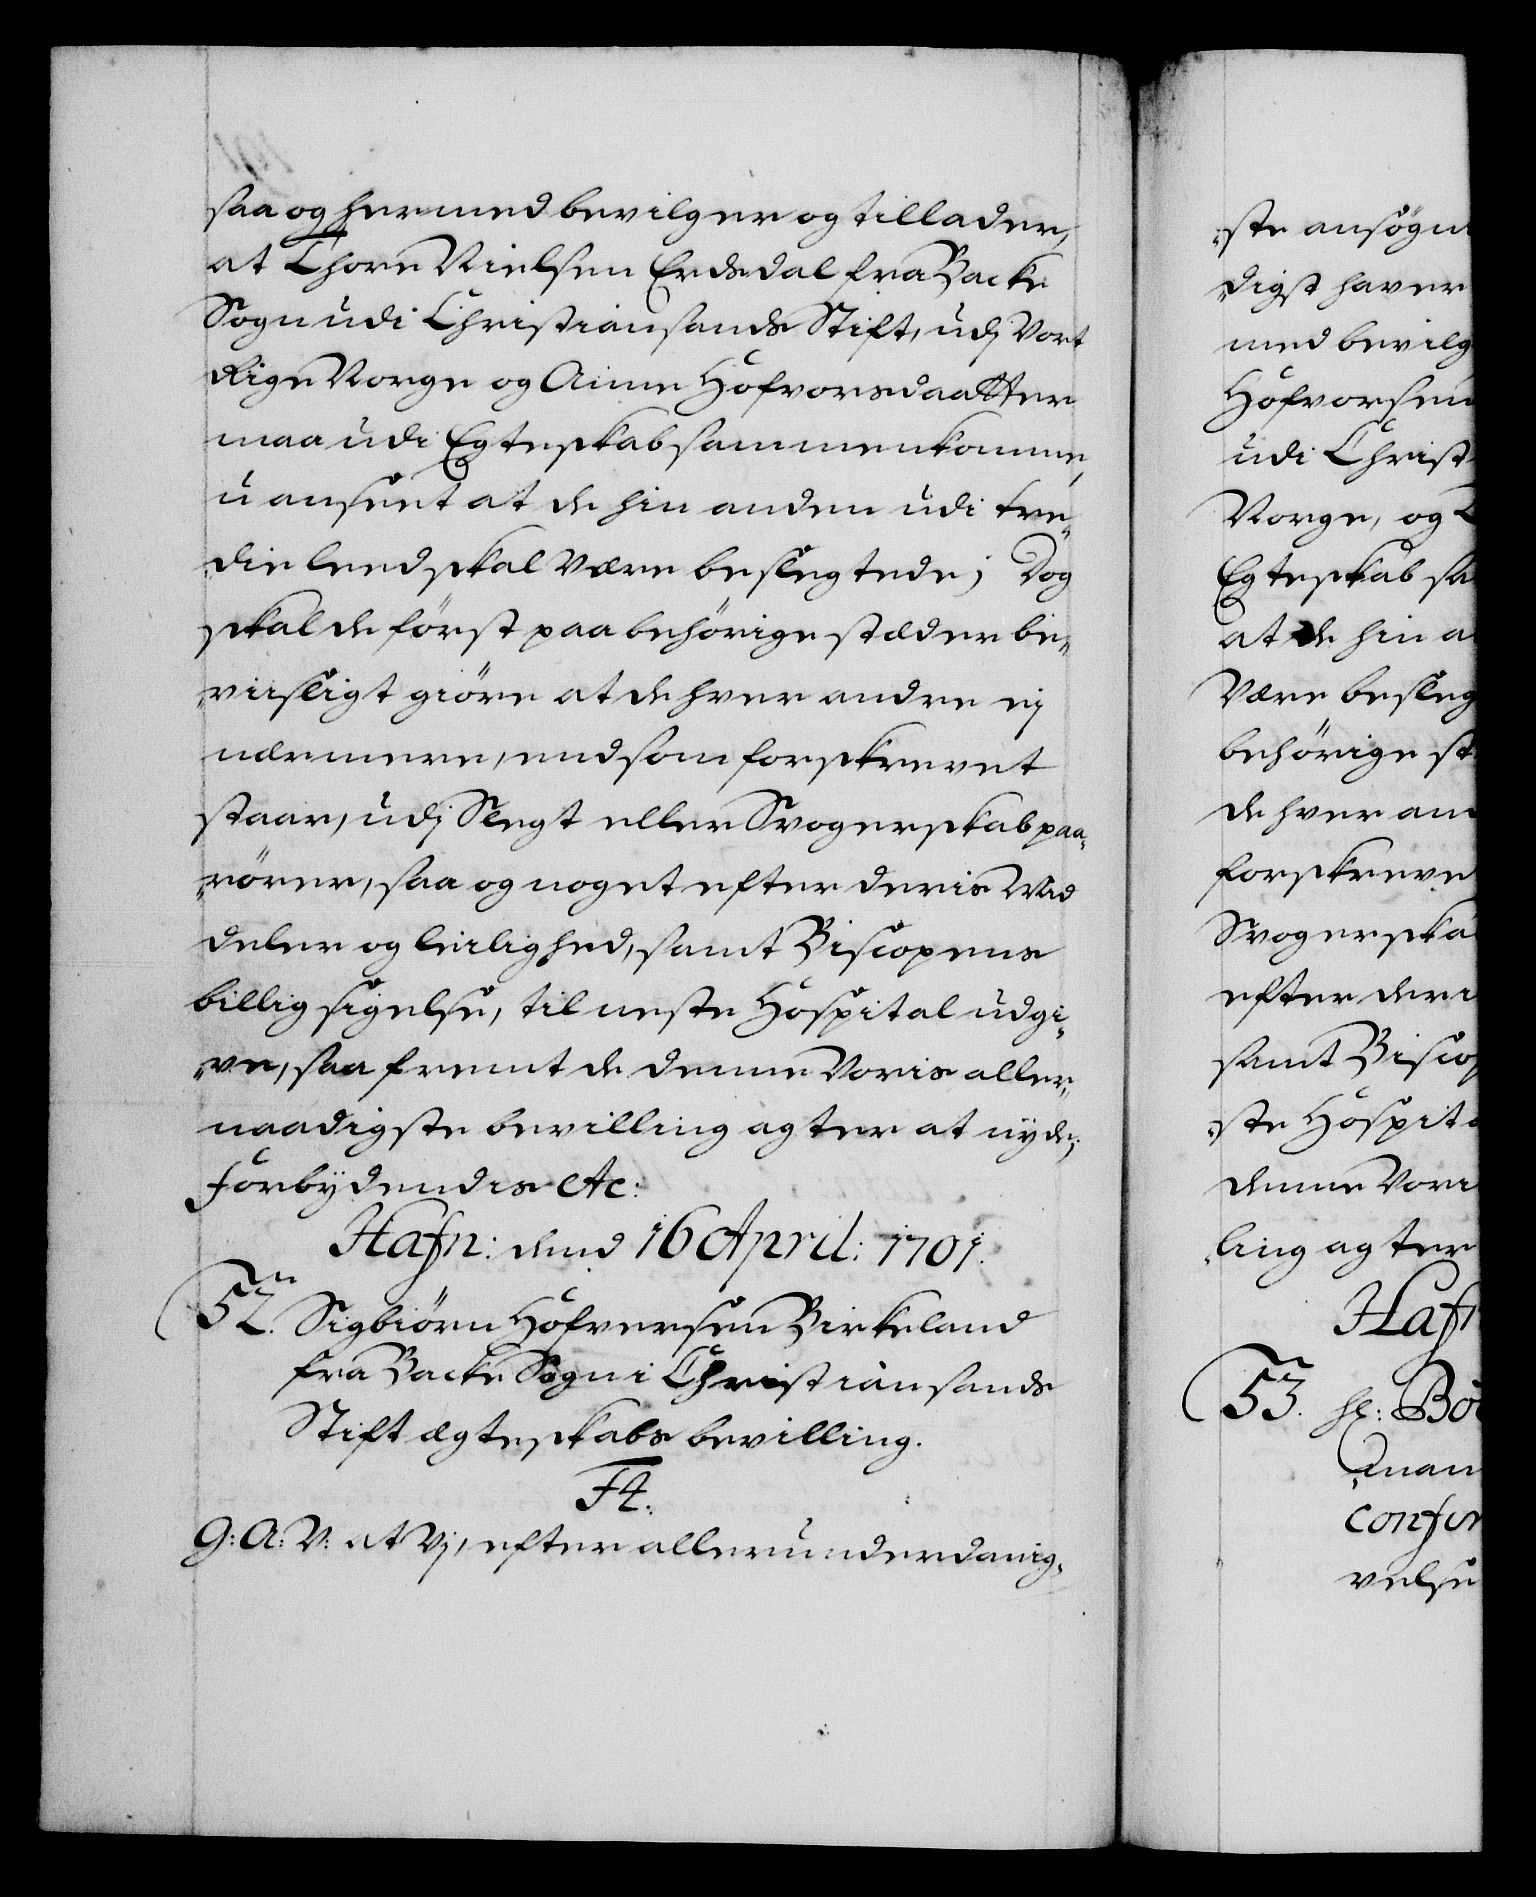 saa og hermed bevilger og tillader,
at Thore Nielsen Erdsdal fra Backe
Sogn udi Christiansands Stift, udj Vort
Rige Norge og Anne Hofvorsdaatter
maa udi Egteskab sammenkomme,
uanseet at de hin anden udi tre„
die leed skal Være beslegtede; Dog
skal de først paa behörige stæder be„
„viisligt giöre at de hver andre ej
nærmere, end som forskrevet
staar, udj Slegt eller Svogerskab paa„
„rörer, saa og noget efter deris Mid
deler og leilighed, samt Biscopens
billig sigelse, til neste Hospital udgi„
„ve, saa fremt de denne Voris aller„
naadigste bevilling agter at nyde;
Forbydendis etc:
Hafn: dend 16 April: 1701.
52. Sigbiörn Hofversen Birkeland
fra Backe Sogn i Christiansands
Stift ægteskabs bevilling.
F4.
G: A: V: at Vj, efter allerunderdanig„
„ste ansøgn
„digst haver
med bevilg
Hofvorsen
udi Christ
Norge, og
Egteskab sa
at de hin a
Være besleg
behörige st
de hver an
forskreve
Svogerska
efter deri
samt Biscop
„ste Hospita
denne Vori
„ling agter
Hafn
53. Hr: Bö
„man
confir
velse